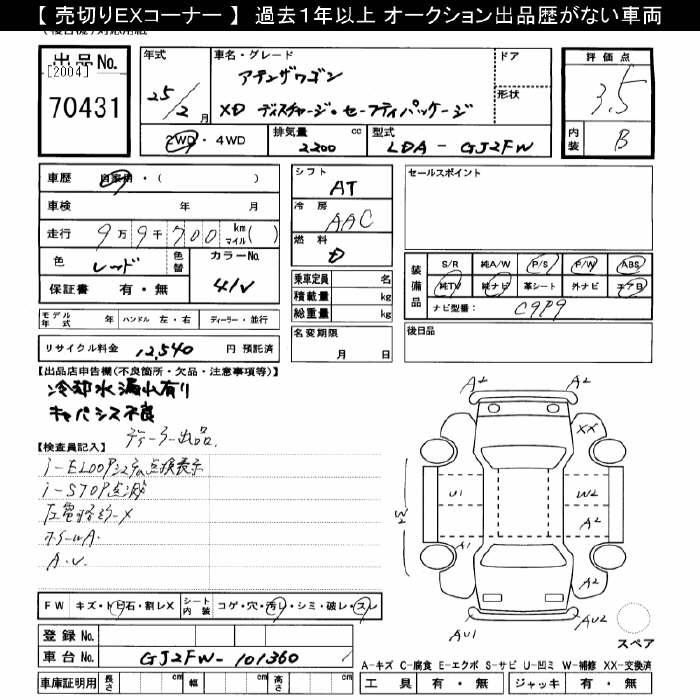 【 売切りEXコーナー 】 過去１年以上 オークション出品歴がない車両
出品 No.
[2004]
70431
年式
25/2 月
車名・グレード
アテンザワゴン
XD ディスチャージ・セーフティパッケージ
ドア
形状
評価点
3.5
内装
B
2WD・4WD
排気量 cc
2200
型式
LDA - GJ2FW
車歴 自家用・( )
車検 年 月
走行 9万9千700 km マイル( )
色 レッド 色替
カラーNo.
41V
保証書 有・無
シフト
AT
冷房
AAC
燃料
D
乗車定員 名
積載量 kg
総重量 kg
名変期限
月 日
セールスポイント
装備品
S/R 純A/W P/S P/W ABS
純TV 純ナビ 革シート 外ナビ エアB
ナビ型番: C9P9
後日品
モデル年式 年 ハンドル 左・右 ディーラー・並行
リサイクル料金 12,540 円 預託済
【出品店申告欄(不良箇所・欠品・注意事項等)】
冷却水漏れ有り
キャパシス不良
ディーラー出品
【検査員記入】
i-ELOOPシステム点検表示
i-STOP点滅
ホールA.
A.U.
FW キズ・トビ石・割レX
シート内装 コゲ・穴・汚レ・シミ・破レ・スレ
登録 No.
車台 No. GJ2FW-101360
車庫証明用 長さ cm 幅 cm 高さ cm
A2 A2
XX
U1 W2
A2
W2
A1
A2
AU1 AU2
スペア
A-キズ C-腐食 E-エクボ S-サビ U-凹ミ W-補修 XX-交換済
工具 有・無 ジャッキ 有・無